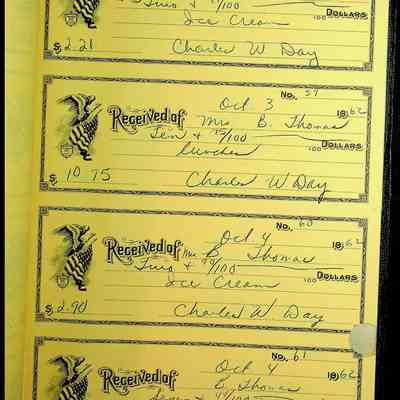 Two + /100
100 DOLLARS
Ice Cream
$ 2.21 Charles W Day
No. 59
Oct 3 1962
Received of Mrs B. Thomas
Ten + 75/100
100 DOLLARS
lunches
$ 10 75 Charles W Day
No. 60
Oct 4 1962
Received of Mrs B Thomas
Two + 90/100
100 DOLLARS
Ice Cream
$ 2.90 Charles W Day
No. 61
Oct 4 1962
Received of B Thomas
/100 DOLLARS